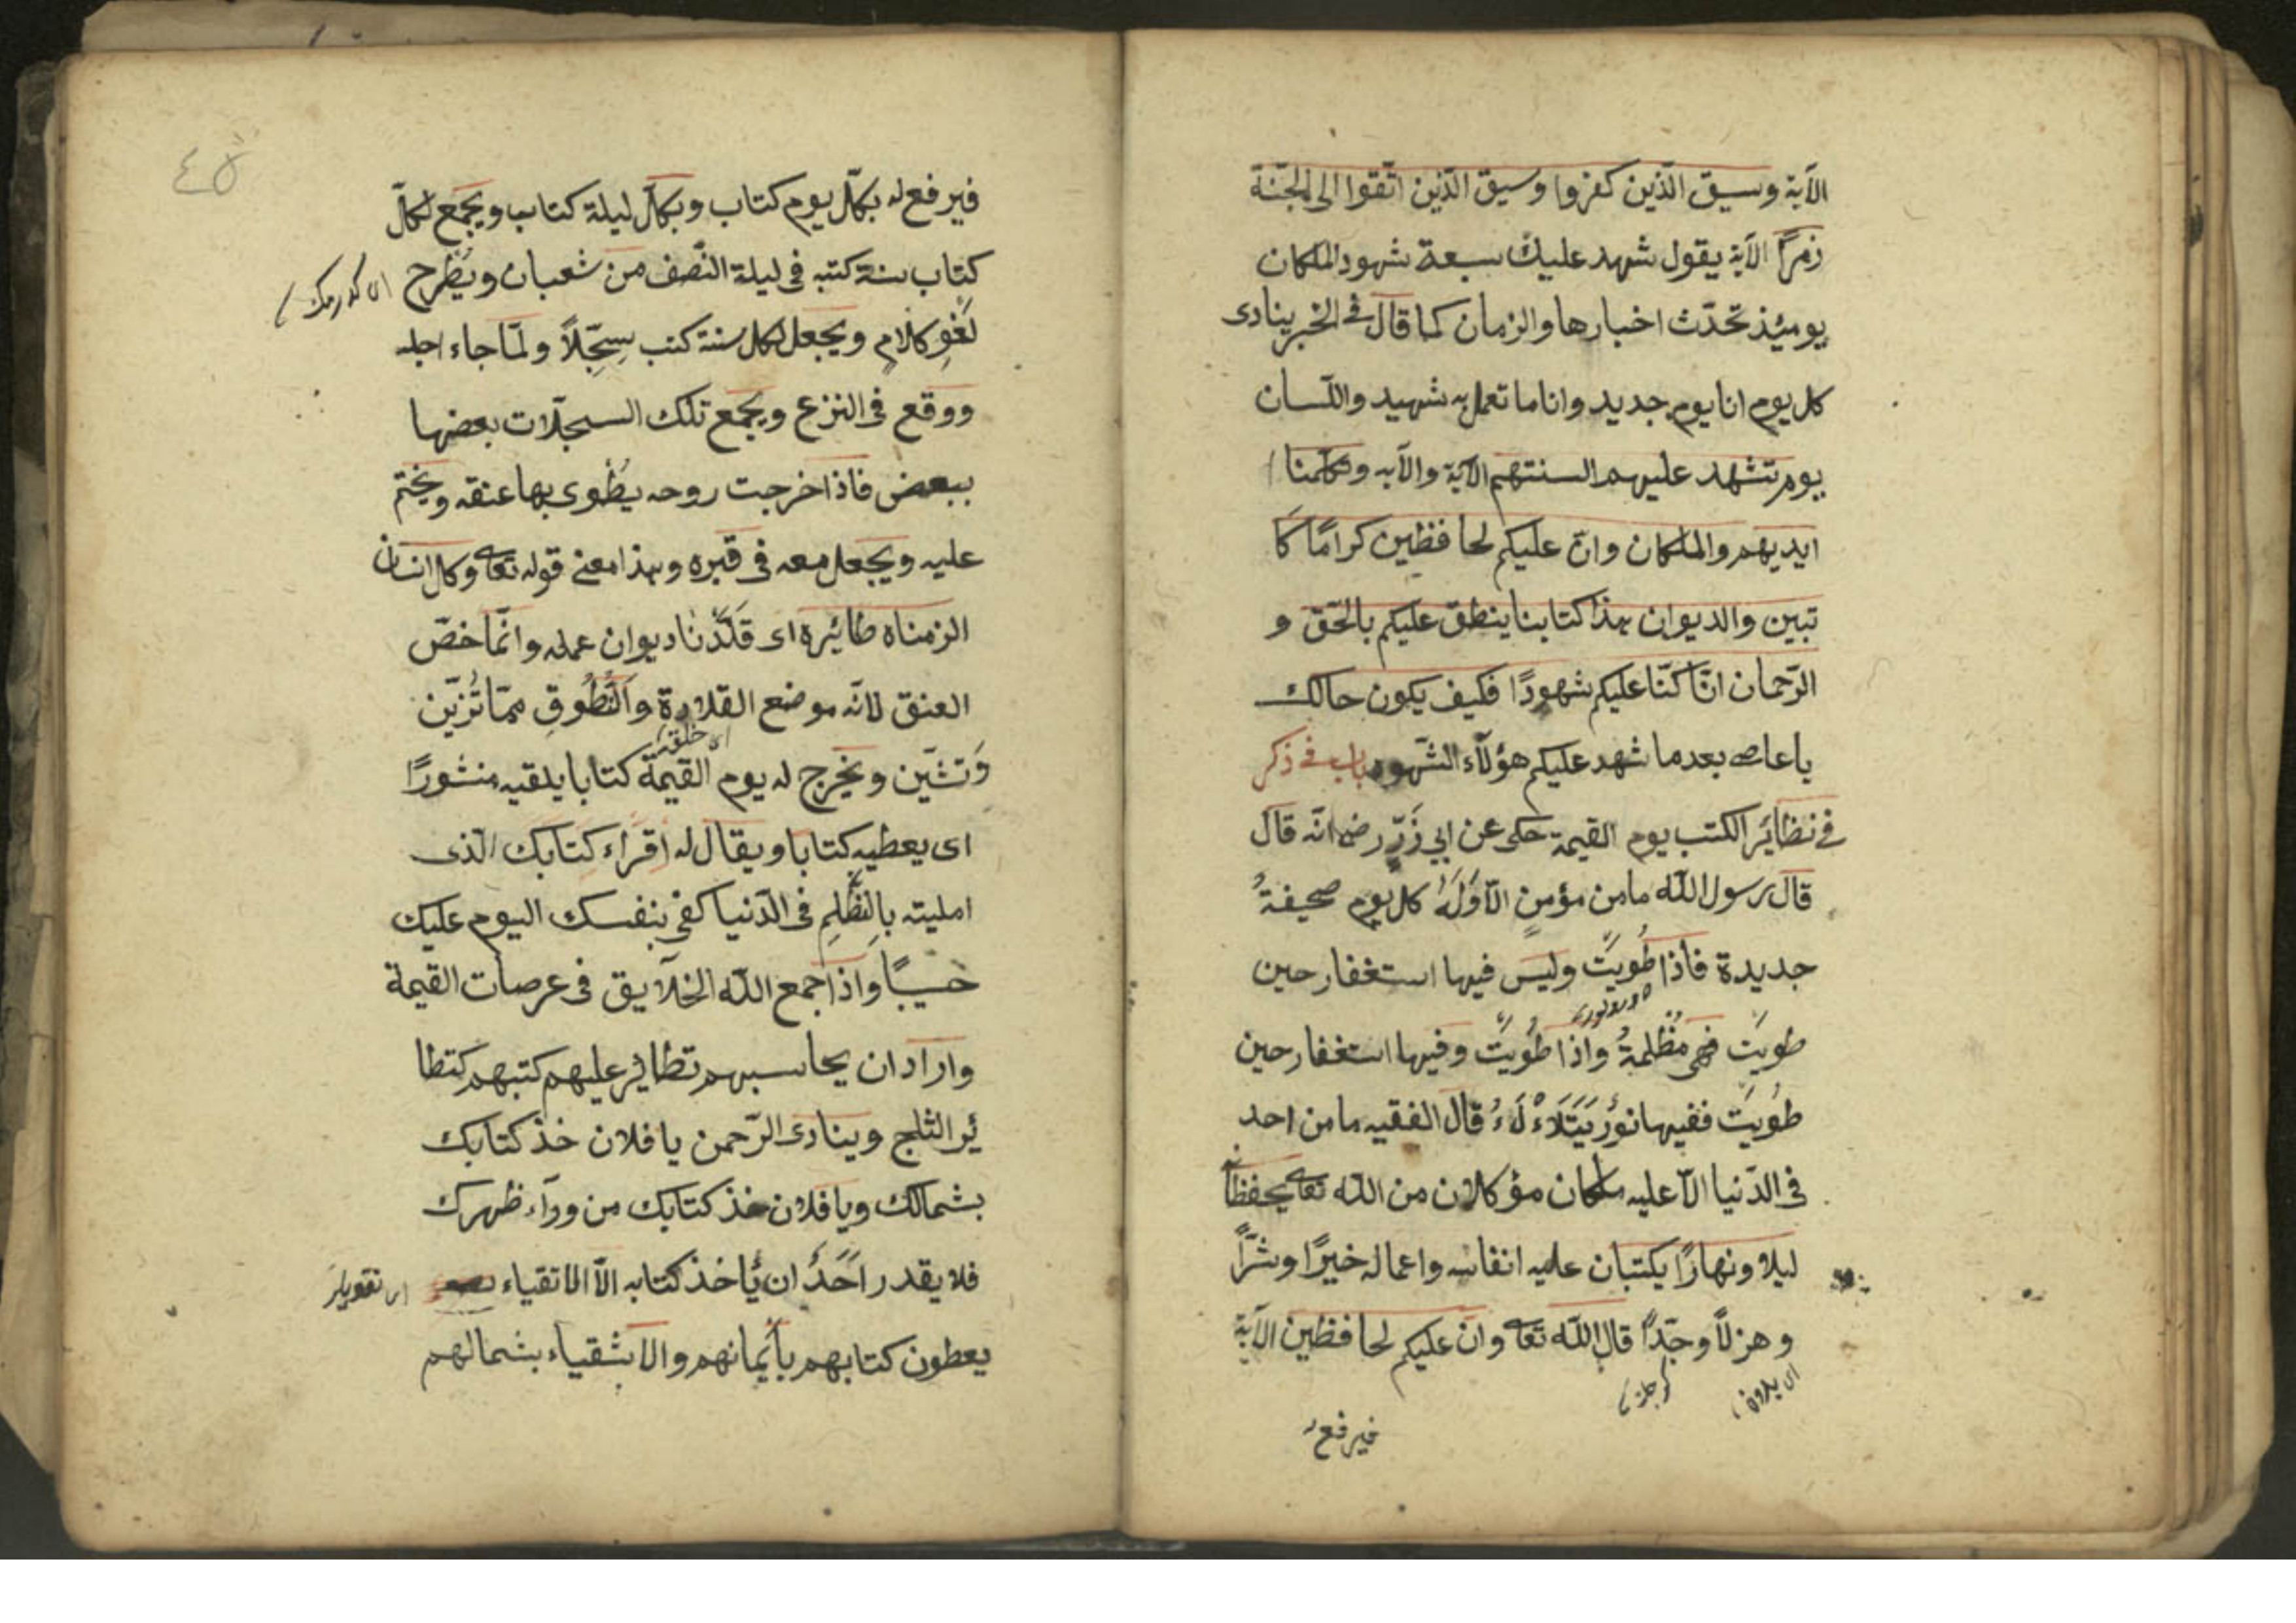 الآية وسيق الّذين كفروا وسيق الّذين اتّقوا الى الجنّة
زمرًا الآية يقول شهد عليك سبعة شهود المكان
يومئذ تحدّث اخبارها والزمان كما قال في الخبر ينادى
كل يوم انا يوم جديد وانا ما تعمل به شهيد واللّسان
يوم تشهد عليهم السنتهم الآية والآيه وتكلّمنا
ايديهم والملكان وانّ عليكم لحافظين كرامًا كا
تبين والديوان هذا كتابنا ينطق عليكم بالحّق و
الرّحمان انّا كنّا عليكم شهودًا فكيف يكون حالك
يا عاصى بعدما شهد عليكم هؤلآء الشّهود باب فى ذكر
فى نظائر الكتب يوم القيمة حكى عن ابي ذَرٍّ رضه انّه قال
قال رسول اللّه ما من مؤمنٍ الّا وَلَهُ كل يوم صحيفةُ
جديدة فاذا طُويَتْ وليس فيها استغفار حين
طويَت فهى مُظلمةُ واذا طُويَتْ وفيها استغفار حين
طُويَت ففيها نورُ يَتَلَاْءلَاءُ قال الفقيه ما من احد
فى الدّنيا الّا عليه ملكان مؤكلان من اللّه تعالى يحفظانه
ليلا ونهارًا يكتبان عليه انفاسه واعماله خيرًا وشرًّا
وهزلًا وجدًّا قال اللّه تعالى وانّ عليكم لحافظين الآية
فيرفع له
٤٥
فيرفع له بكلّ يوم كتاب وبكلّ ليلة كتاب ويجمع لكلّ
كتاب سنة كتبه فى ليلة النّصف من شعبان ويُطرح
لَغْوِ كلامٍ ويجعل لكل سنة كتب سِجِّلًا ولمّا جاء اجله
ووقع فى النزع ويجمع تلك السجلّات بعضها
ببعض فاذا خرجت روحه يُطْوى بها عنقه ويختم
عليه ويجعل معه فى قبره وهذا معنى قوله تعالى وكل انسان
الزمناه طائره اى قَلَّدْنا ديوان عمله وانّما خصّ
العنق لانّه موضع القلادة والتُّطُوقِ ممّا تُزيّن
وَتشّين ونخرج له يوم القيمة كتابا يلقيه منشورًا
اى يعطيه كتابا ويقال له اِقرَاء كِتَابَك الّذى
امليته بالظُّلمِ فى الدّنيا كفى بنفسك اليوم عليك
حسيبًا واذا جمع اللّه الخلآيق فى عرصات القيمة
واراد ان يحاسبهم تطائر عليهم كتبهم كتطا
ئر الثلج وينادى الرّحمن يا فلان خذ كتابك
بشمالك ويا فلان خذ كتابك من ورآء ظهرك
فلا يقدر اَحَدُ ان يُأخذ كتابه الّا الاتقياء
يعطون كتابهم بأيمانهم والاشقياء بشمالهم